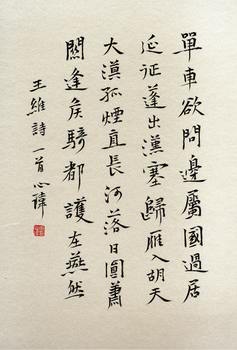 單車欲問邊屬國過居
延征蓬出漢塞歸雁入胡天
大漠孤煙直長河落日圓蕭
關逢侯騎都護在燕然
王維詩一首心